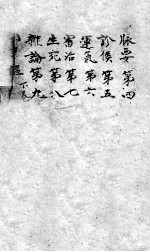 脉要第四
診候第五
運氣第六
審治第七
生死第八
雜論第九